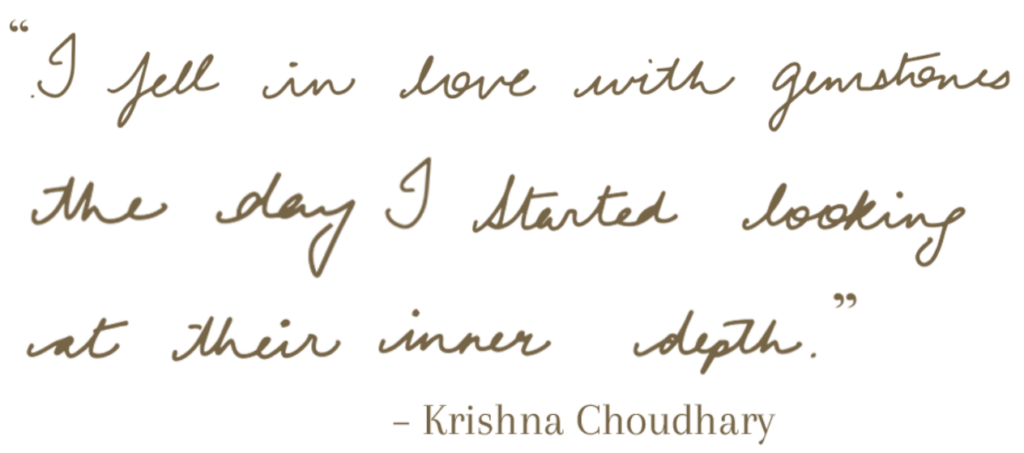 “I fell in love with gemstones
the day I started looking
at their inner depth.”
– Krishna Choudhary